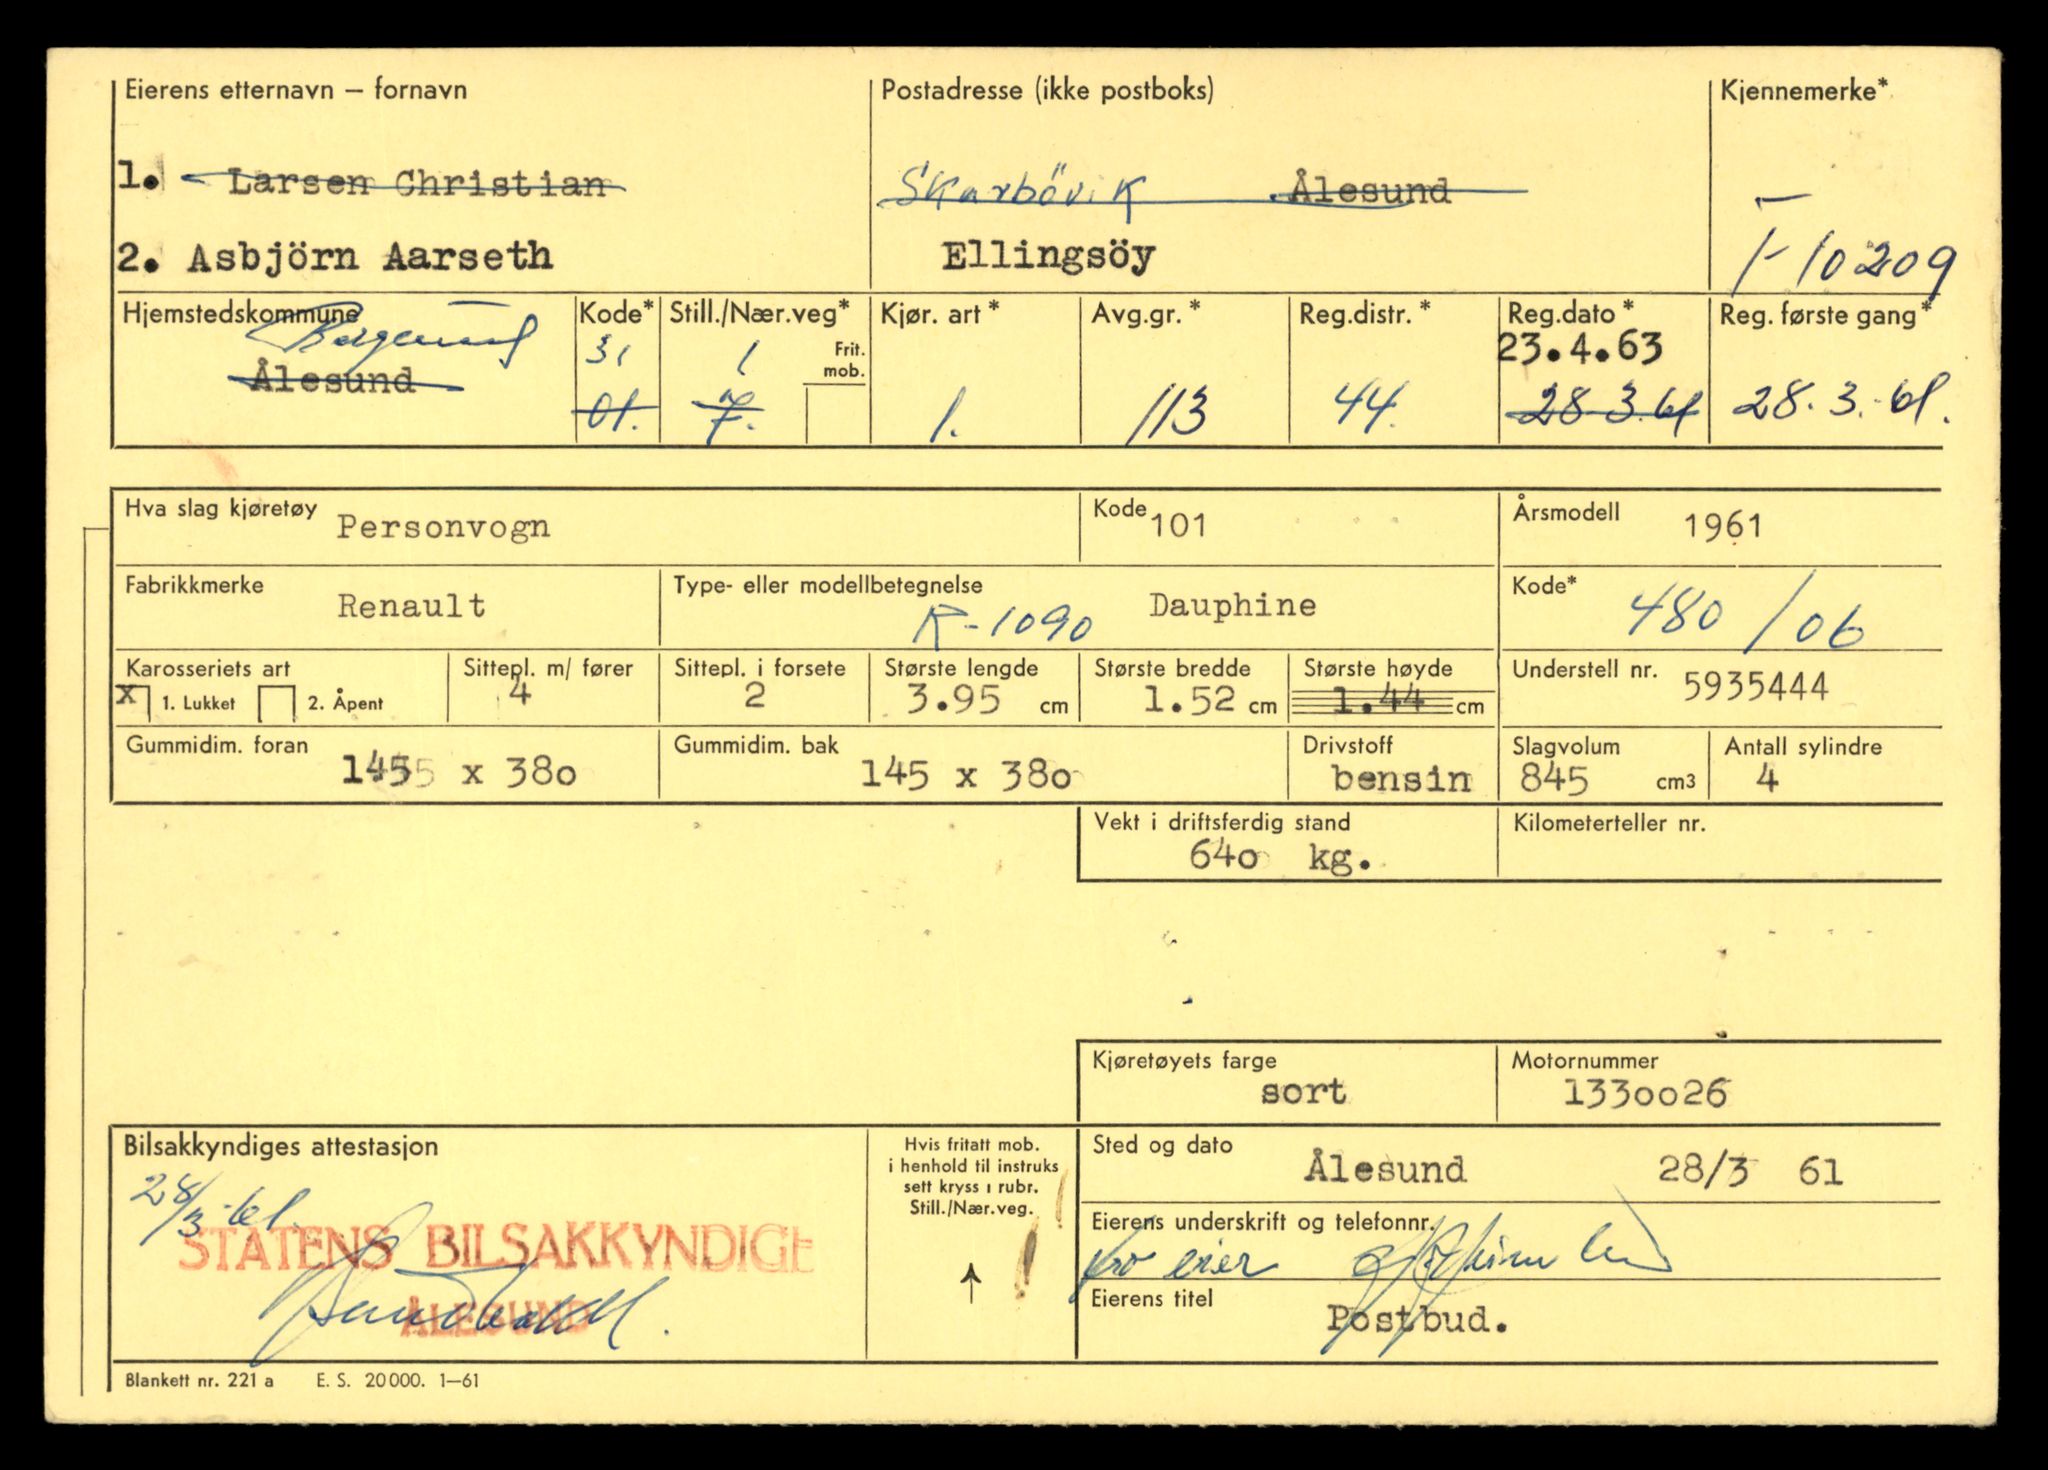 Eierens etternavn – fornavn Postadresse (ikke postboks) Kjennemerke*
1. Larsen Christian Skarbövik Ålesund
2. Asbjörn Aarseth Ellingsöy T-10209
Hjemstedskommune Kode* Still./Nær.veg* Kjør. art* Avg.gr.* Reg.distr.* Reg.dato* Reg. første gang*
Borgund 31 1 Frit. mob. 23.4.63
Ålesund 01. 7. 1. 113 44. 28-3.61 28.3.-61.
Hva slag kjøretøy Personvogn Kode 101 Årsmodell 1961
Fabrikkmerke Renault Type- eller modellbetegnelse R-1090 Dauphine Kode* 480/06
Karosseriets art Sittepl. m/ fører Sittepl. i forsete Største lengde Største bredde Største høyde Understell nr. 5935444
X 1. Lukket 2. Åpent 4 2 3.95 cm 1.52 cm 1.44 cm
Gummidim. foran Gummidim. bak Drivstoff Slagvolum Antall sylindre
1455 x 380 145 x 380 bensin 845 cm3 4
Vekt i driftsferdig stand Kilometerteller nr.
640 kg.
Kjøretøyets farge Motornummer
sort 1330026
Bilsakkyndiges attestasjon
28/3-61.
STATENS BILSAKKYNDIGE
ÅLESUND
Hvis fritatt mob.
i henhold til instruks
sett kryss i rubr.
Still./Nær.veg.
Sted og dato
Ålesund 28/3 61
Eierens underskrift og telefonnr.
pro eier
Eierens titel
Postbud.
Blankett nr. 221 a E. S. 20000. 1–61